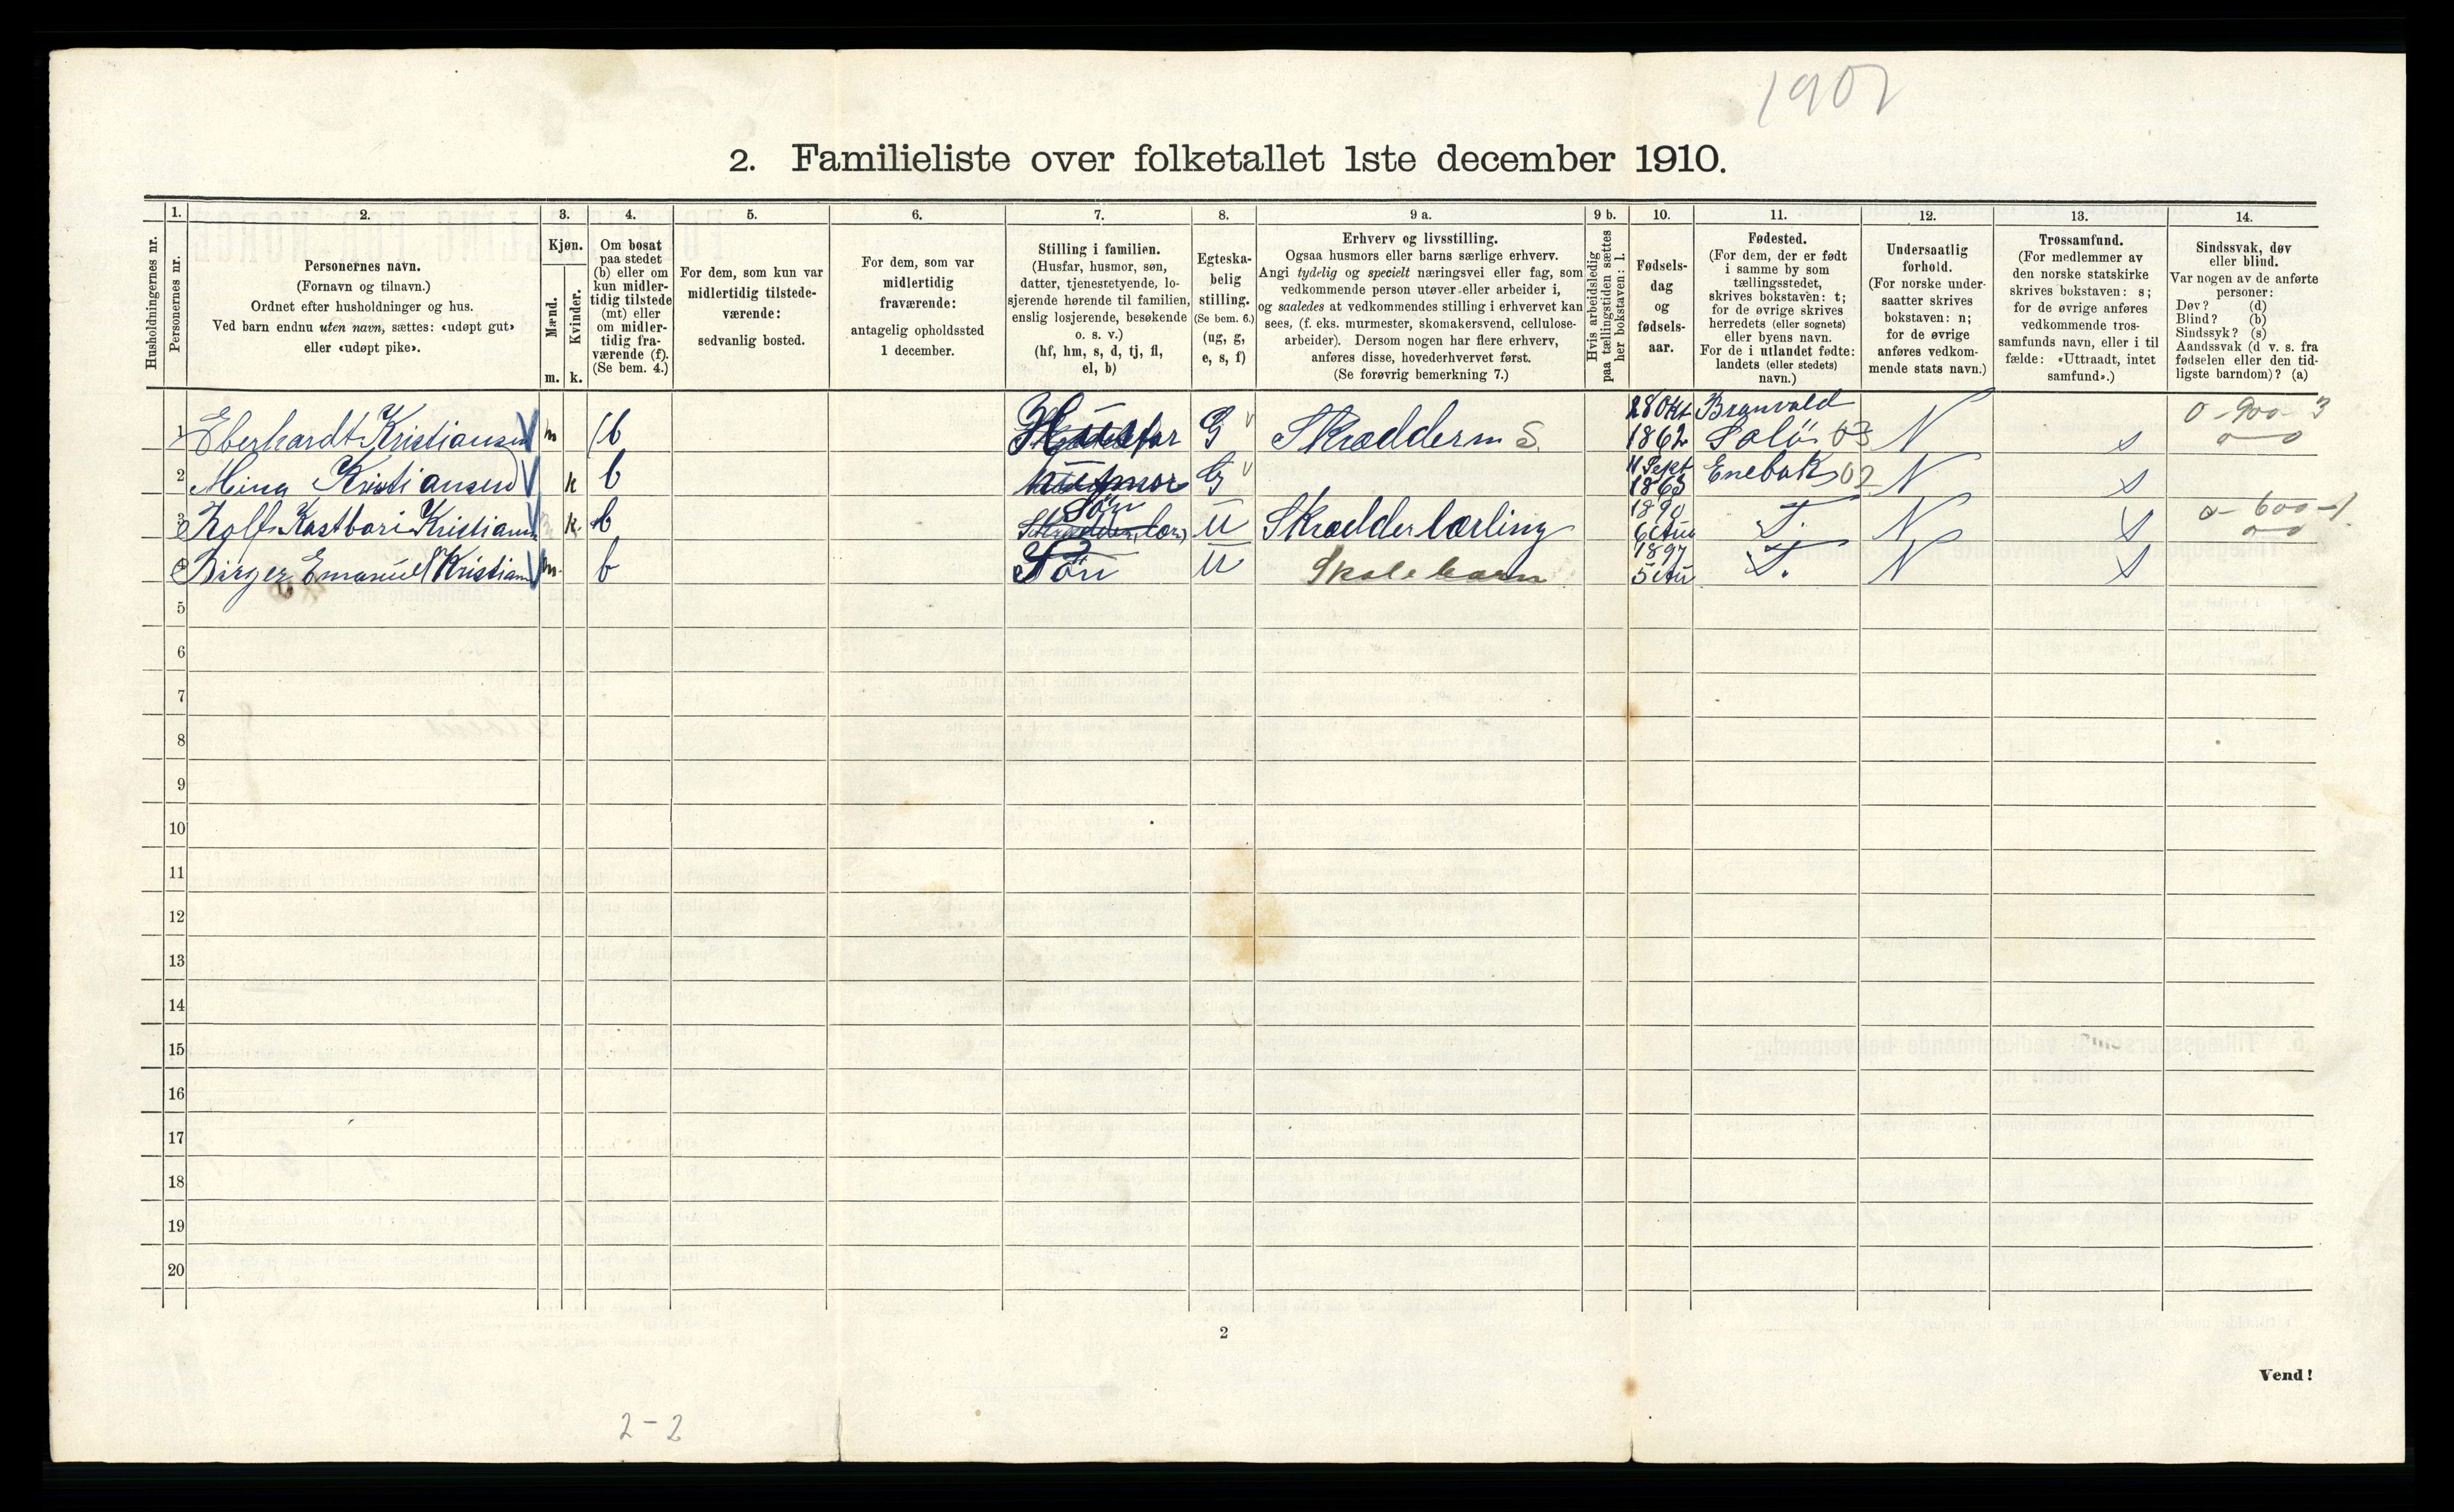 1907
2. Familieliste over folketallet 1ste december 1910.
Husholdningernes nr.
1.
Personernes nr.
2.
Personernes navn.
(Fornavn og tilnavn.)
Ordnet efter husholdninger og hus.
Ved barn endnu uten navn, sættes: «udøpt gut»
eller «udøpt pike».
3.
Kjøn.
Mænd.
Kvinder.
m. k.
4.
Om bosat
paa stedet
(b) eller om
kun midler-
tidig tilstede
(mt) eller
om midler-
tidig fra-
værende (f).
(Se bem. 4.)
5.
For dem, som kun var
midlertidig tilstede-
værende:
sedvanlig bosted.
6.
For dem, som var
midlertidig
fraværende:
antagelig opholdssted
1 december.
7.
Stilling i familien.
(Husfar, husmor, søn,
datter, tjenestetyende, lo-
sjerende hørende til familien,
enslig losjerende, besøkende
o. s. v.)
(hf, hm, s, d, tj, fl,
el, b)
8.
Egteska-
belig
stilling.
(Se bem. 6.)
(ug, g,
e, s, f)
9 a.
Erhverv og livsstilling.
Ogsaa husmors eller barns særlige erhverv.
Angi tydelig og specielt næringsvei eller fag, som
vedkommende person utøver eller arbeider i,
og saaledes at vedkommendes stilling i erhvervet kan
sees, (f. eks. murmester, skomakersvend, cellulose-
arbeider). Dersom nogen har flere erhverv,
anføres disse, hovederhvervet først.
(Se forøvrig bemerkning 7.)
9 b.
Hvis arbeidsledig
paa tællingstiden sættes
her bokstaven: l.
10.
Fødsels-
dag
og
fødsels-
aar.
11.
Fødested.
(For dem, der er født
i samme by som
tællingsstedet,
skrives bokstaven: t;
for de øvrige skrives
herredets (eller sognets)
eller byens navn.
For de i utlandet fødte:
landets (eller stedets)
navn.)
12.
Undersaatlig
forhold.
(For norske under-
saatter skrives
bokstaven: n;
for de øvrige
anføres vedkom-
mende stats navn.)
13.
Trossamfund.
(For medlemmer av
den norske statskirke
skrives bokstaven: s;
for de øvrige anføres
vedkommende tros-
samfunds navn, eller i til
fælde: «Uttraadt, intet
samfund».)
14.
Sindssvak, døv
eller blind.
Var nogen av de anførte
personer:
Døv? (d)
Blind? (b)
Sindssyk? (s)
Aandssvak (d v. s. fra
fødselen eller den tid-
ligste barndom)? (a)
1 Eberhardt Kristiansen m b Husfar G Skrædderm S. 28 Okt 1862 Branvold Solör 03 N s 0-900-3
2 Mina Kristiansen k b husmor G 11 Sept 1863 Enebak 02 N s
3 Rolf Kristians k b Sön U Skrædderlærling 1890 6 Aug T. N s 0-600-1
4 Birger Emanuel Kristians m. b Sön U Skolebarn 1897 5 Au T. N s
5
6
7
8
9
10
11
12
13
14
15
16
17
18
19
20
2
Vend!
2-2